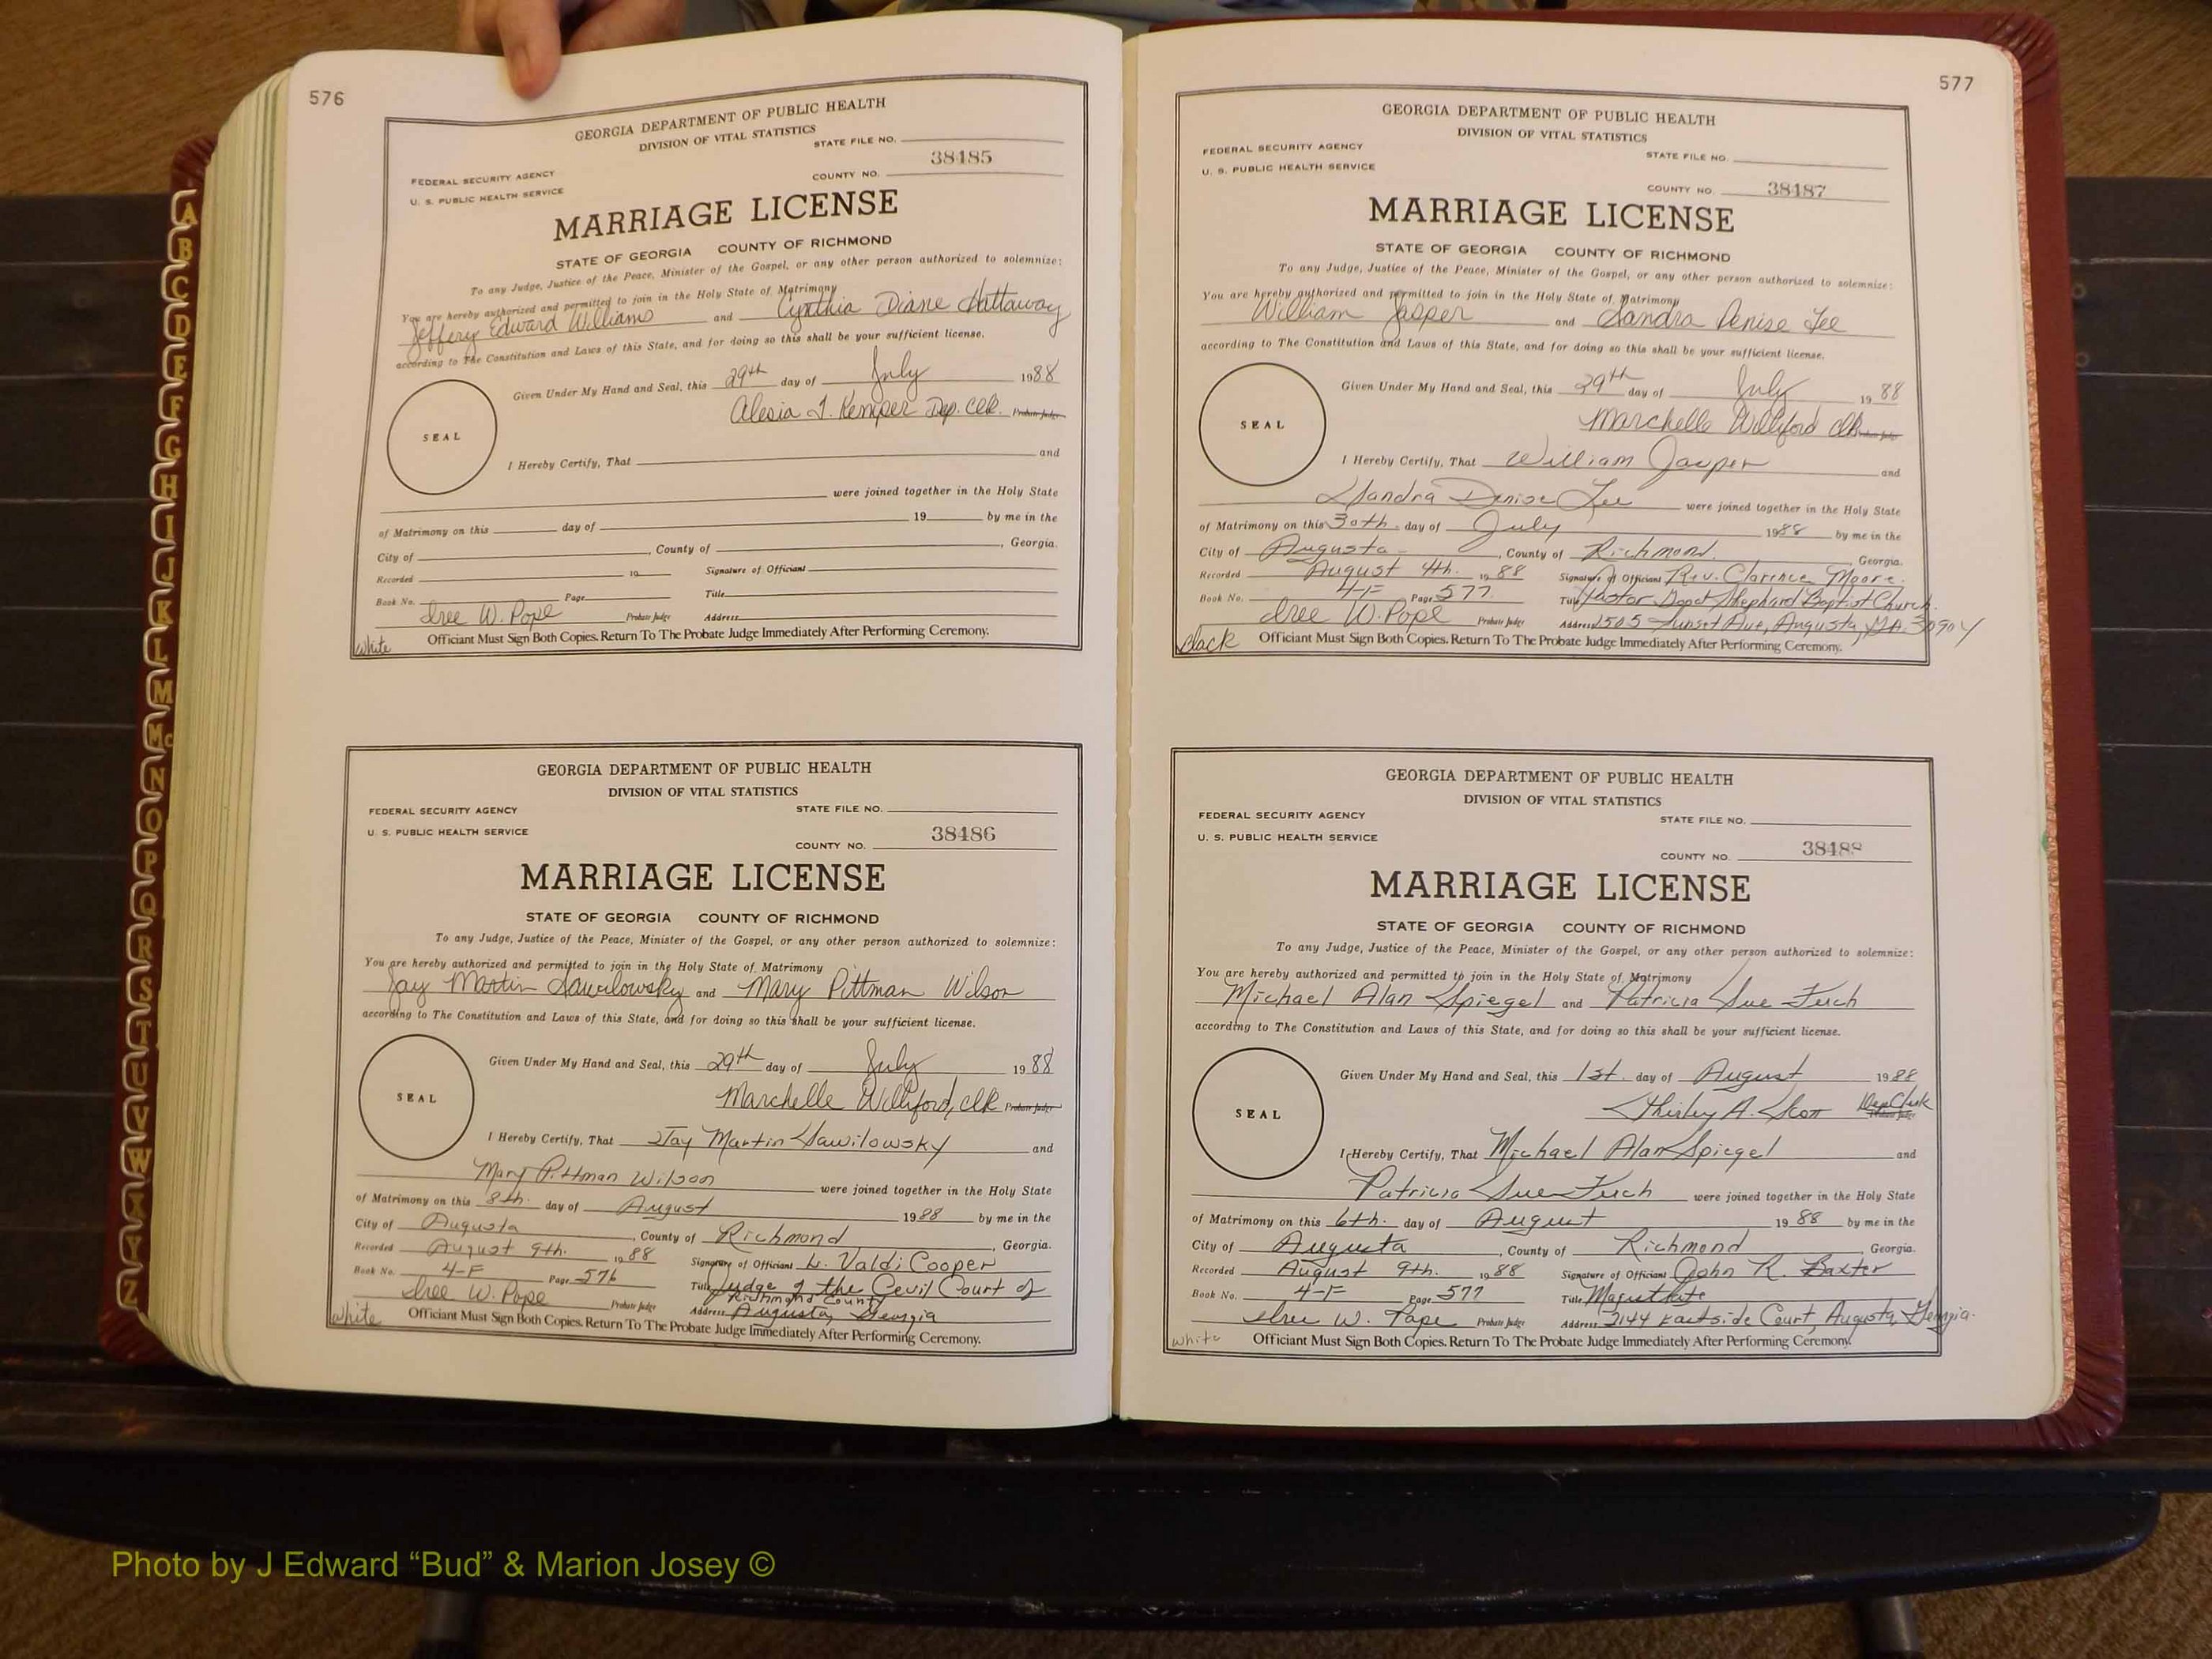 576
GEORGIA DEPARTMENT OF PUBLIC HEALTH
DIVISION OF VITAL STATISTICS
STATE FILE NO.
38485
FEDERAL SECURITY AGENCY
COUNTY NO.
U. S. PUBLIC HEALTH SERVICE
MARRIAGE LICENSE
STATE OF GEORGIA COUNTY OF RICHMOND
To any Judge, Justice of the Peace, Minister of the Gospel, or any other person authorized to solemnize:
You are hereby authorized and permitted to join in the Holy State of Matrimony
Jeffery Edward Williams and Cynthia Diane Hattaway
according to The Constitution and Laws of this State, and for doing so this shall be your sufficient license.
Given Under My Hand and Seal, this 29th day of July 1988
Alesia J. Kemper Dep. Clk. Probate Judge
SEAL
I Hereby Certify, That and
were joined together in the Holy State
of Matrimony on this day of 19 by me in the
City of , County of , Georgia.
Recorded 19 Signature of Officiant
Book No. Page Title
Iree W. Pope Probate Judge Address
White Officiant Must Sign Both Copies. Return To The Probate Judge Immediately After Performing Ceremony.
GEORGIA DEPARTMENT OF PUBLIC HEALTH
DIVISION OF VITAL STATISTICS
FEDERAL SECURITY AGENCY STATE FILE NO.
U. S. PUBLIC HEALTH SERVICE 38486
COUNTY NO.
MARRIAGE LICENSE
STATE OF GEORGIA COUNTY OF RICHMOND
To any Judge, Justice of the Peace, Minister of the Gospel, or any other person authorized to solemnize:
You are hereby authorized and permitted to join in the Holy State of Matrimony
Jay Martin Sawilowsky and Mary Pittman Wilson
according to The Constitution and Laws of this State, and for doing so this shall be your sufficient license.
Given Under My Hand and Seal, this 29th day of July 1988
SEAL Marchelle Williford, Clk Probate Judge
I Hereby Certify, That Jay Martin Sawilowsky and
Mary Pittman Wilson were joined together in the Holy State
of Matrimony on this 8th. day of August 1988 by me in the
City of Augusta , County of Richmond , Georgia.
Recorded August 9th. 1988 Signature of Officiant L. Valdi Cooper
Book No. 4-F Page 576 Title Judge of the Civil Court of
Richmond County
Iree W. Pope Probate Judge Address Augusta, Georgia
White Officiant Must Sign Both Copies. Return To The Probate Judge Immediately After Performing Ceremony.
577
GEORGIA DEPARTMENT OF PUBLIC HEALTH
DIVISION OF VITAL STATISTICS
FEDERAL SECURITY AGENCY STATE FILE NO.
U. S. PUBLIC HEALTH SERVICE
COUNTY NO. 38487
MARRIAGE LICENSE
STATE OF GEORGIA COUNTY OF RICHMOND
To any Judge, Justice of the Peace, Minister of the Gospel, or any other person authorized to solemnize:
You are hereby authorized and permitted to join in the Holy State of Matrimony
William Jasper and Sandra Denise Lee
according to The Constitution and Laws of this State, and for doing so this shall be your sufficient license.
Given Under My Hand and Seal, this 29th day of July 1988
SEAL Marchelle Williford Clk Probate Judge
I Hereby Certify, That William Jasper and
Sandra Denise Lee were joined together in the Holy State
of Matrimony on this 30th. day of July 1988 by me in the
City of Augusta , County of Richmond. Georgia.
Recorded August 4th. 1988 Signature of Officiant Rev. Clarence Moore.
Book No. 4-F Page 577 Title Pastor Good Shephard Baptist Church.
Iree W. Pope Probate Judge Address 1505 Sunset Ave, Augusta, GA. 30904
Black Officiant Must Sign Both Copies. Return To The Probate Judge Immediately After Performing Ceremony.
GEORGIA DEPARTMENT OF PUBLIC HEALTH
DIVISION OF VITAL STATISTICS
FEDERAL SECURITY AGENCY STATE FILE NO.
U. S. PUBLIC HEALTH SERVICE
COUNTY NO. 38488
MARRIAGE LICENSE
STATE OF GEORGIA COUNTY OF RICHMOND
To any Judge, Justice of the Peace, Minister of the Gospel, or any other person authorized to solemnize:
You are hereby authorized and permitted to join in the Holy State of Matrimony
Michael Alan Spiegel and Patricia Sue
according to The Constitution and Laws of this State, and for doing so this shall be your sufficient license.
Given Under My Hand and Seal, this 1st. day of August 1988
SEAL Shirley A. Scott Dep Clerk Probate Judge
I Hereby Certify, That Michael Alan Spiegel and
Patricia Sue were joined together in the Holy State
of Matrimony on this 6th. day of August 1988 by me in the
City of Augusta , County of Richmond , Georgia.
Recorded August 9th. 1988 Signature of Officiant John R. Baxter
Book No. 4-F Page 577 Title
Iree W. Pope Probate Judge Address 2144 Eastside Court, Augusta, Georgia.
White Officiant Must Sign Both Copies. Return To The Probate Judge Immediately After Performing Ceremony.
A
B
C
D
E
F
G
H
I
J
K
L
M
Mc
N
O
P
Q
R
S
T
U
V
W
X
Y
Z
Photo by J Edward “Bud” & Marion Josey ©